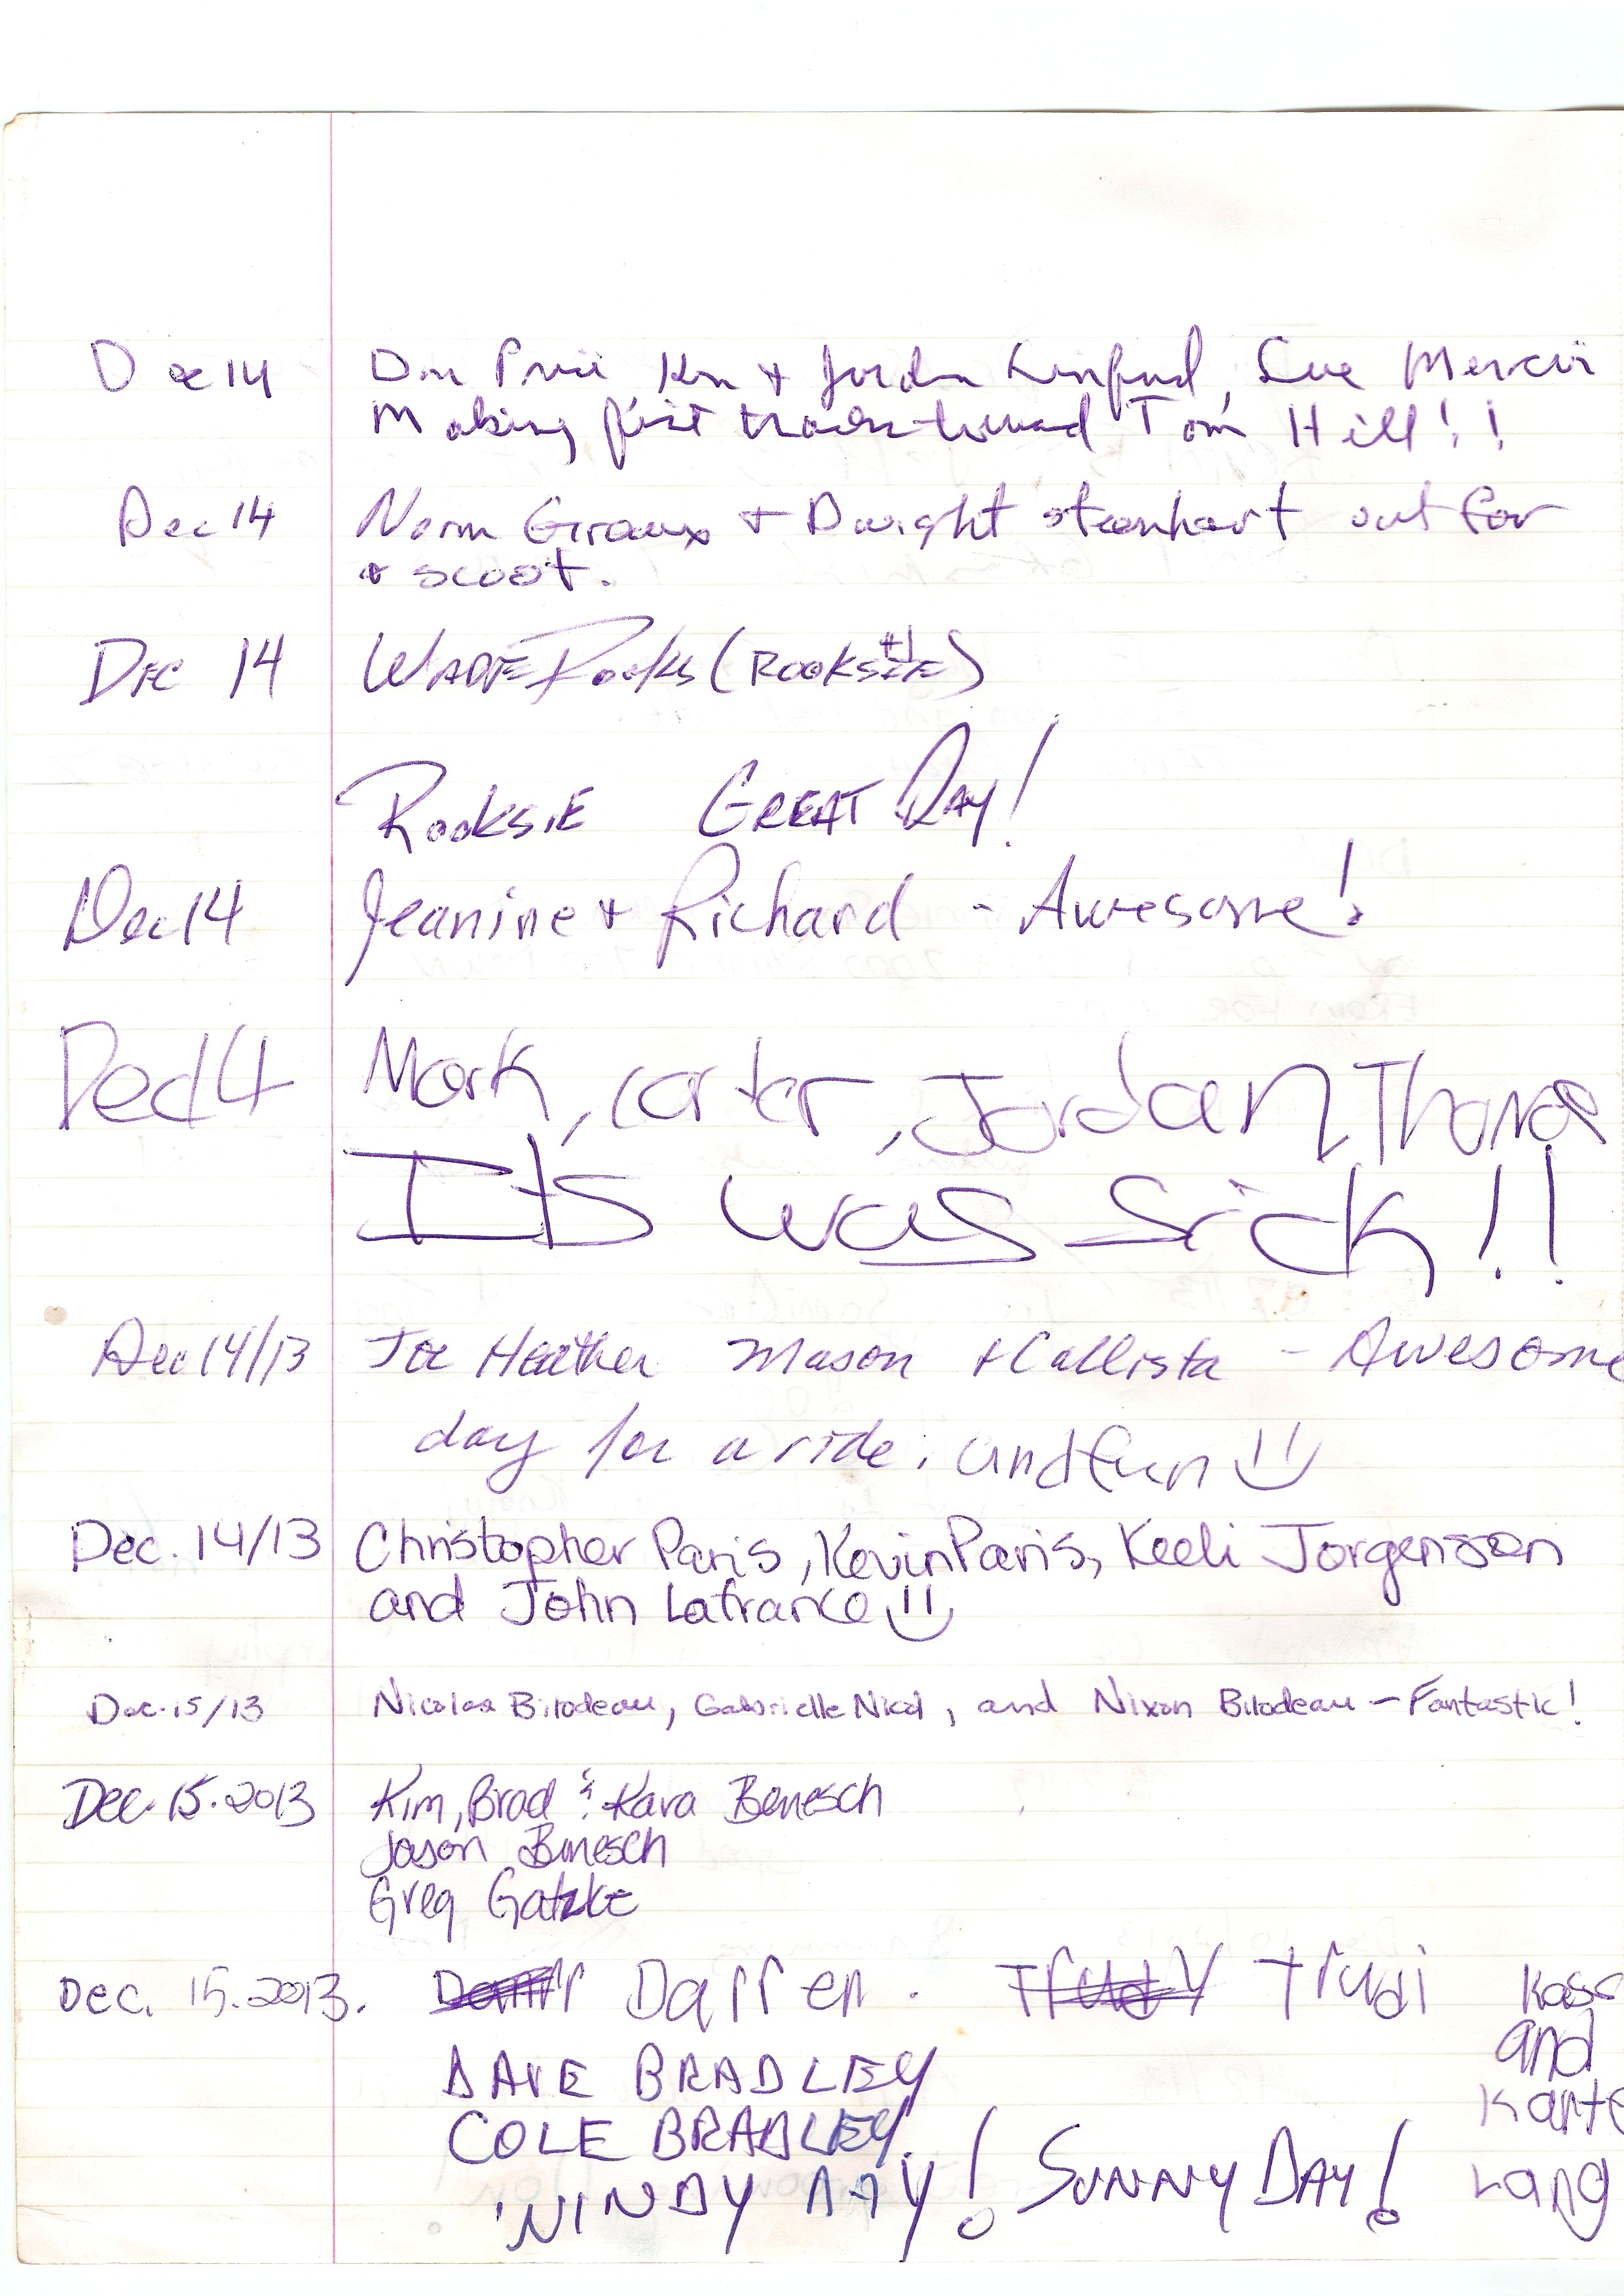 Dec 14 Don Ken + Jordan Sue Mercier
Making first tracks toward Tom Hill!!
Dec 14 Norm Giraux + Dwight steenhart out for
a scoot.
DEC 14 WADE Rooks (ROOKSIE)
ROOKSIE GREAT DAY!
Dec 14 Jeanine + Richard - Awesome!
Dec14 Mark, carter, Jordan Thomas
Its was sick!!
Dec 14/13 Joe Heather Mason + Callista - Awesome
day for a ride. and fun
Dec. 14/13 Christopher Paris, Kevin Paris, Keeli Jorgensson
and John Lafrance
Dec. 15/13 Nicolas Bilodeau, Gabrielle Nicol, and Nixon Bilodeau - Fantastic!
Dec. 15. 2013 Kim, Brad & Kara Benesch
Jason Benesch
Greg Gatzke
Dec. 15. 2013. Darren. Trudy trudi Kass
and
DAVE BRADLEY
COLE BRADLEY. Karte
WINDY DAY! SUNNY DAY! Lang